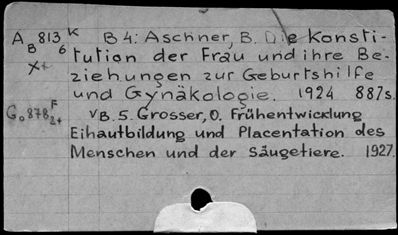 A 813 K B 4: Aschner, B. Die Konsti-
B 6 tution der Frau und ihre Be-
X+ ziehungen zur Geburtshilfe
und Gynäkologie. 1924 887s.
G. 878 F 2+ B. 5. Grosser, O. Frühentwicklung
Eihautbildung und Placentation des
Menschen und der Säugetiere. 1927.